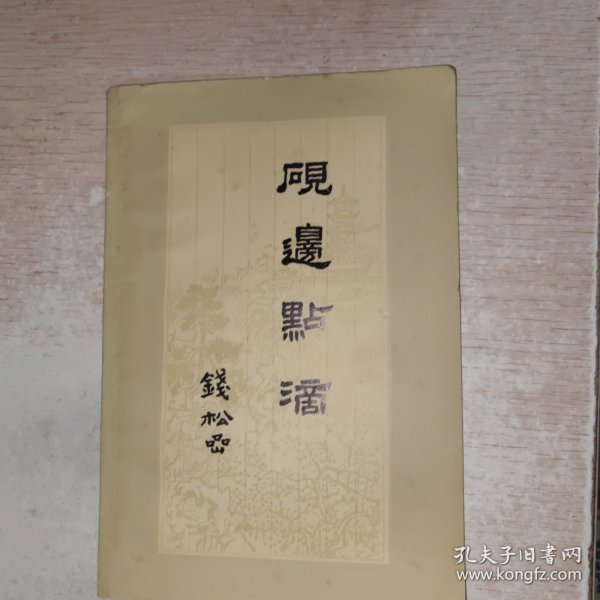 硯邊點滴
錢松嵒
孔夫子旧書网
www.kongfz.com